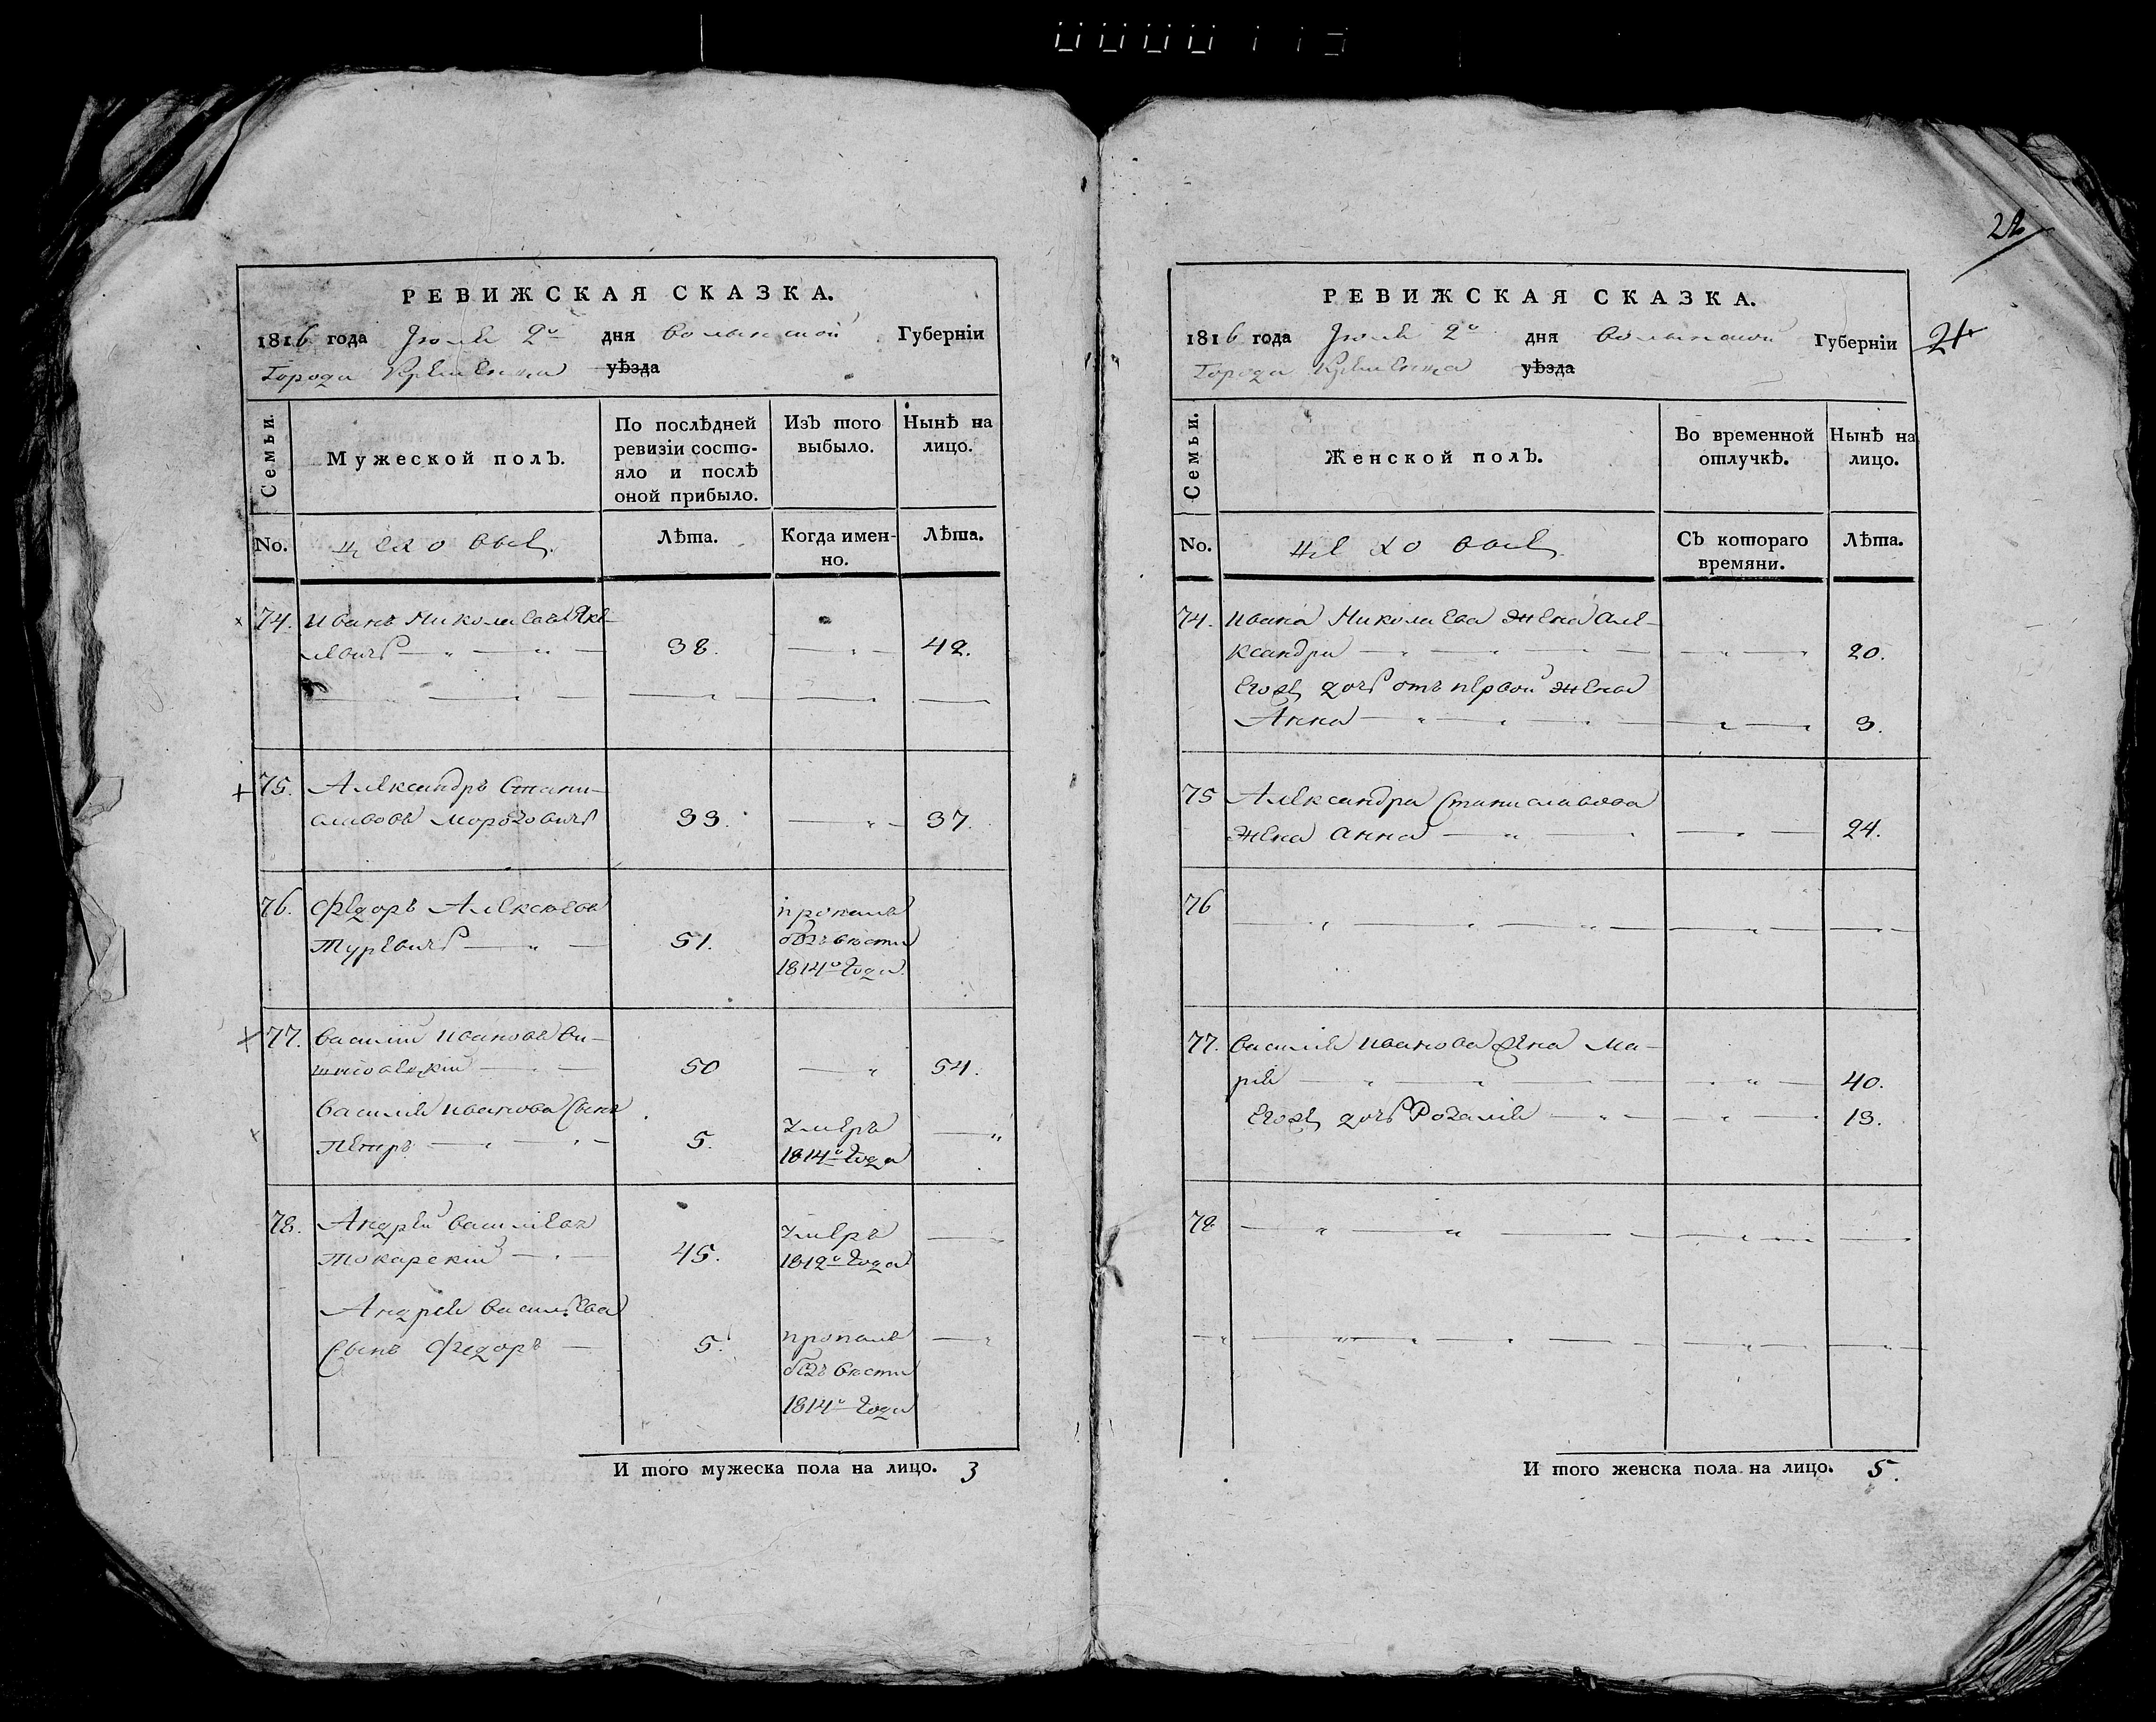 РЕВИЖСКАЯ СКАЗКА.
1816 года Июля 2го дня Волынской Губерніи
Города Кременца уѣзда
Семьи.
Мужеской полъ.
По послѣдней
ревизіи состо-
яло и послѣ
оной прибыло.
Изъ того
выбыло.
Нынѣ на
лицо.
No.
Лѣта.
Когда имен-
но.
Лѣта.
74. Иванъ Николаевъ
38. 42.
75. Александръ Стани-
славовъ Морозовичъ 33. 37.
76. Федоръ Алексѣевъ
Туревичъ 51.
пропалъ
безъ вѣсти
1814го года
77. Василій Ивановъ Ви-
шневецкій 50 54.
Василія Иванова сынъ
Петръ 5.
умеръ
1814го года
78. Андрей Васильевъ
Токарскій 45.
умеръ
1812го года
Андрея Васильева
сынъ Федоръ 5.
пропалъ
безъ вѣсти
1814го года
И того мужеска пола на лицо. 3
22
РЕВИЖСКАЯ СКАЗКА.
1816 года Июля 2го дня Волынской Губерніи
21
Города Кременца уѣзда
Семьи.
Женской полъ.
Во временной
отлучкѣ.
Нынѣ на
лицо.
No.
Съ котораго
времяни.
Лѣта.
74. Ивана Николаева жена Але-
ксандра 20.
Егожъ дочь отъ первой жены
Анна 3.
75 Александра Станиславова
жена Анна 24.
76
77. Василія Иванова жена Ма-
рія 40.
Егожъ дочь Розалія 13.
78
И того женска пола на лицо. 5.